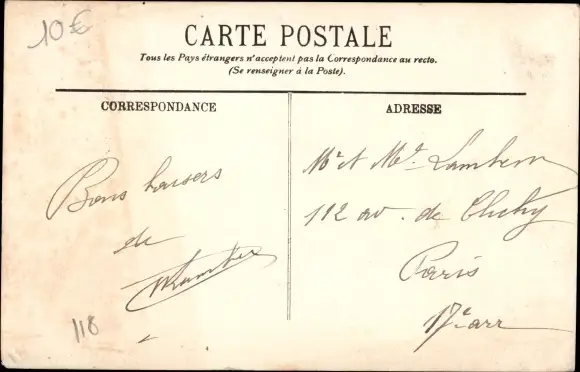 10€
CARTE POSTALE
Tous les Pays étrangers n'acceptent pas la Correspondance au recto.
(Se renseigner à la Poste).
CORRESPONDANCE
Bons baisers
de
118
ADRESSE
Mr et Me
112 av. de Clichy
Paris
17e arr